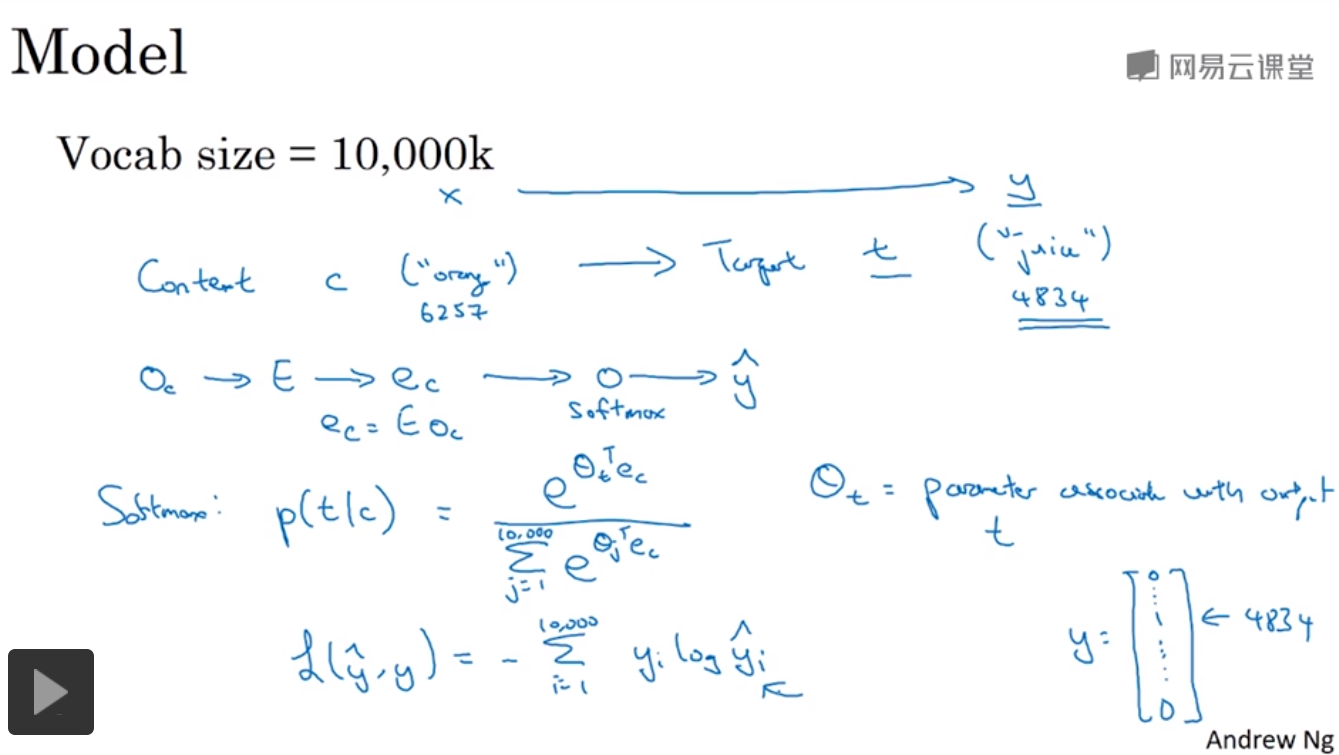 Model
网易云课堂
Vocab size = 10,000k
x → y
Context c ("orange") → Target t ("juice")
6257 4834
O_c → E → e_c → o → ŷ
e_c = E O_c softmax
Softmax: p(t|c) = e^{θ_t^T e_c} / Σ_{j=1}^{10,000} e^{θ_j^T e_c} θ_t = parameter associated with output t
ℒ(ŷ, y) = - Σ_{i=1}^{10,000} y_i log ŷ_i ←
y = [0 ⋮ 1 ⋮ 0] ← 4834
Andrew Ng